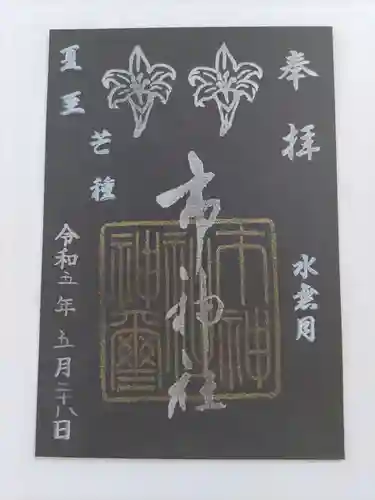 奉拝
水無月
市神社
芒種
夏至
令和五年五月二十八日